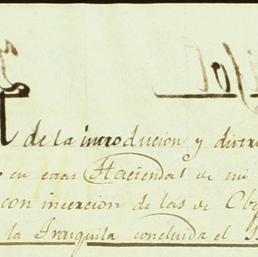 de la introducion y diver
en estas Haciendas de mi
con incercion de las de Ob
la Tranquila concluida el